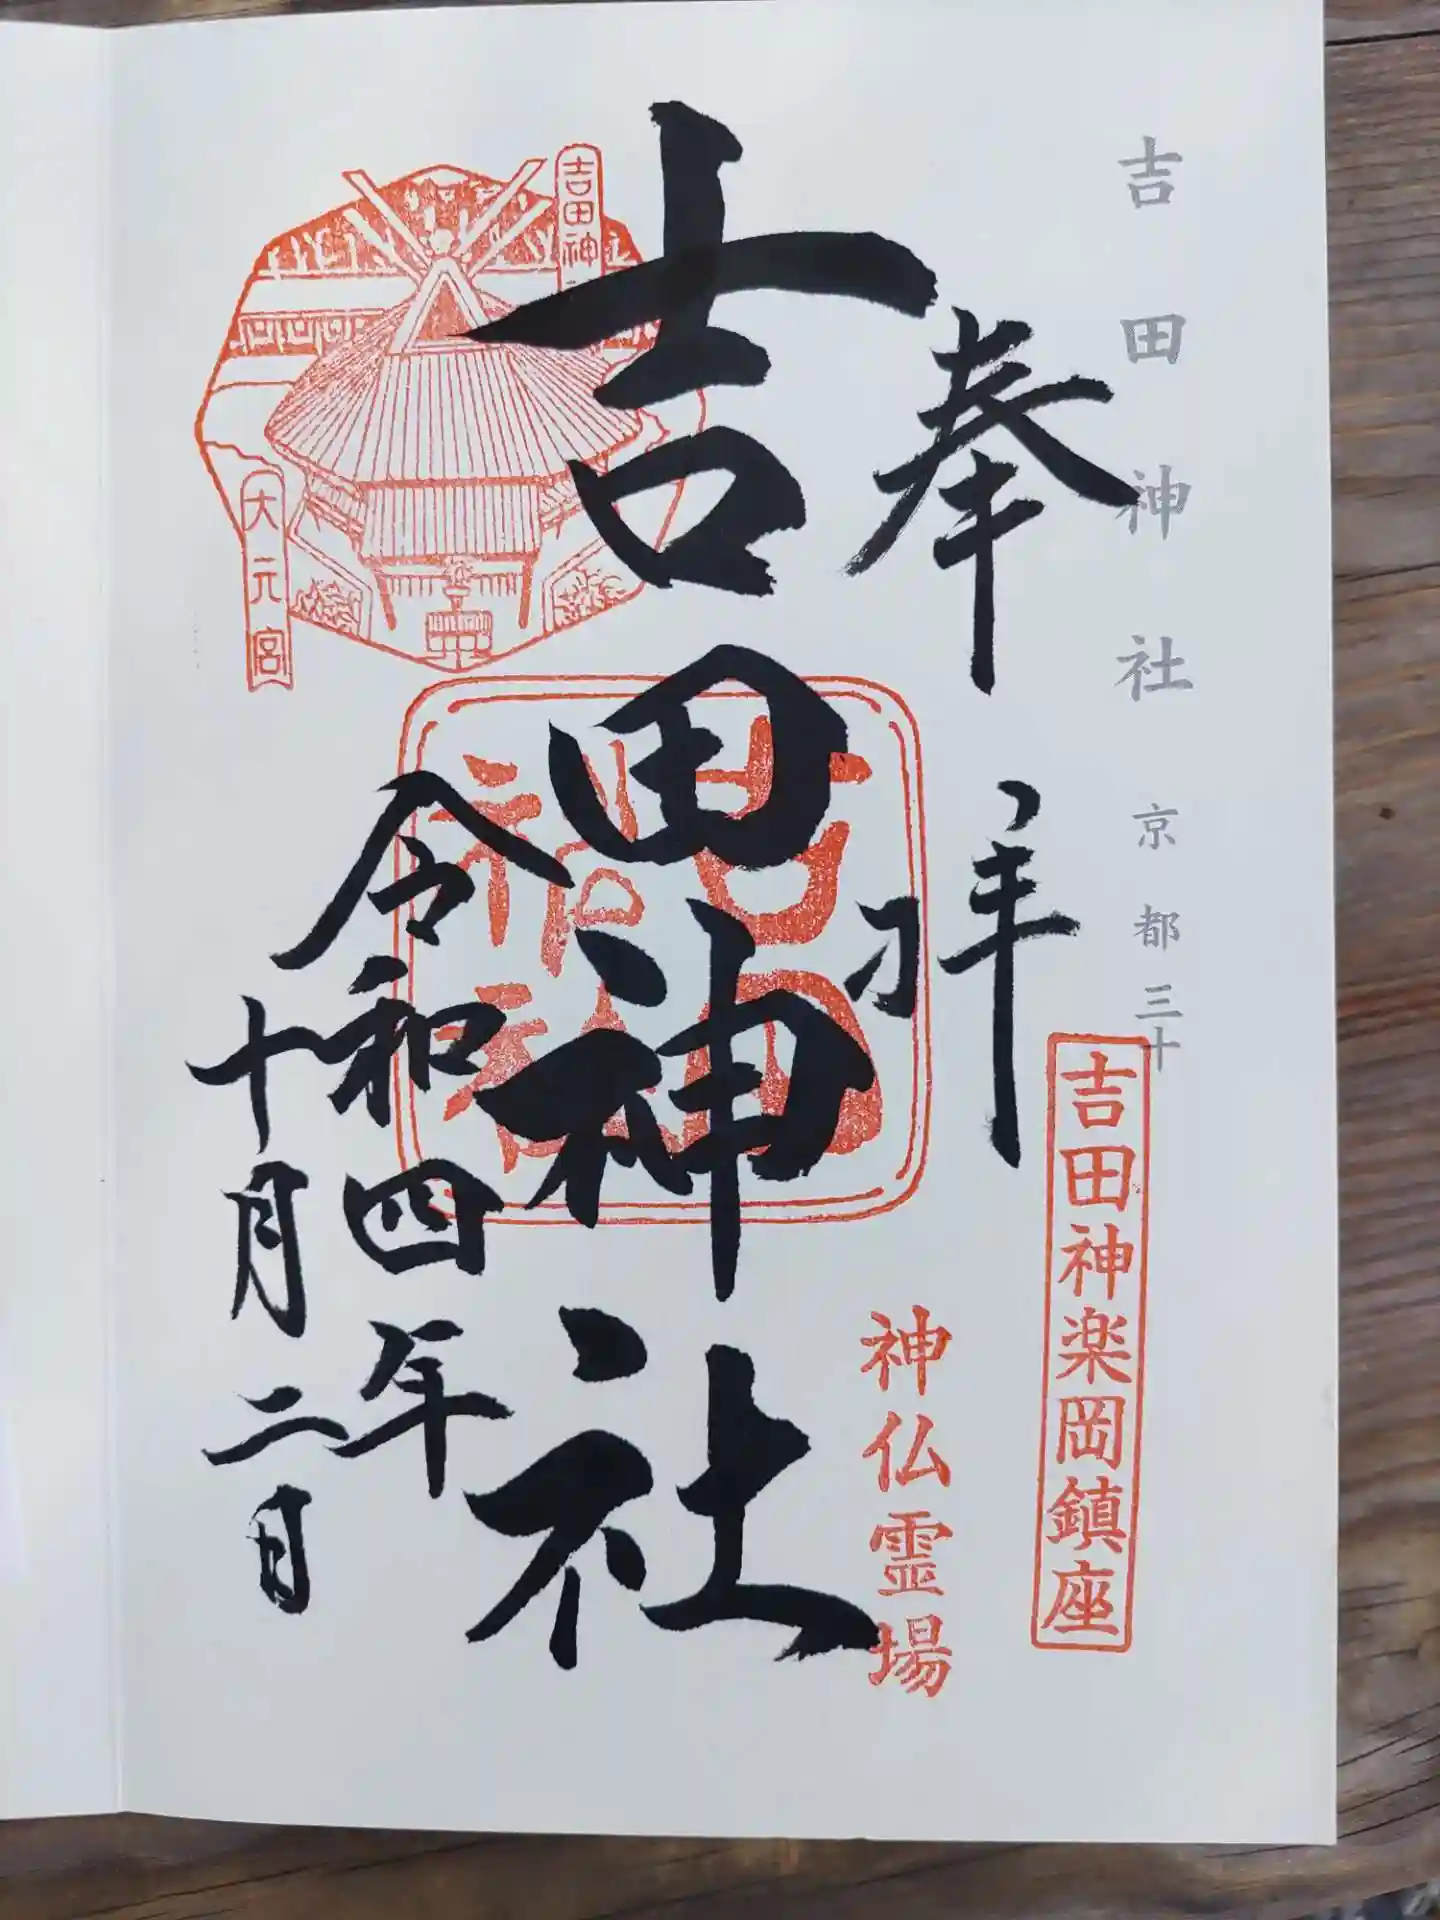 吉田神社 京都三十
吉田神楽岡鎮座
奉拝
神仏霊場
吉田神社
吉田神社
吉田神
大元宮
令和四年
十月二日